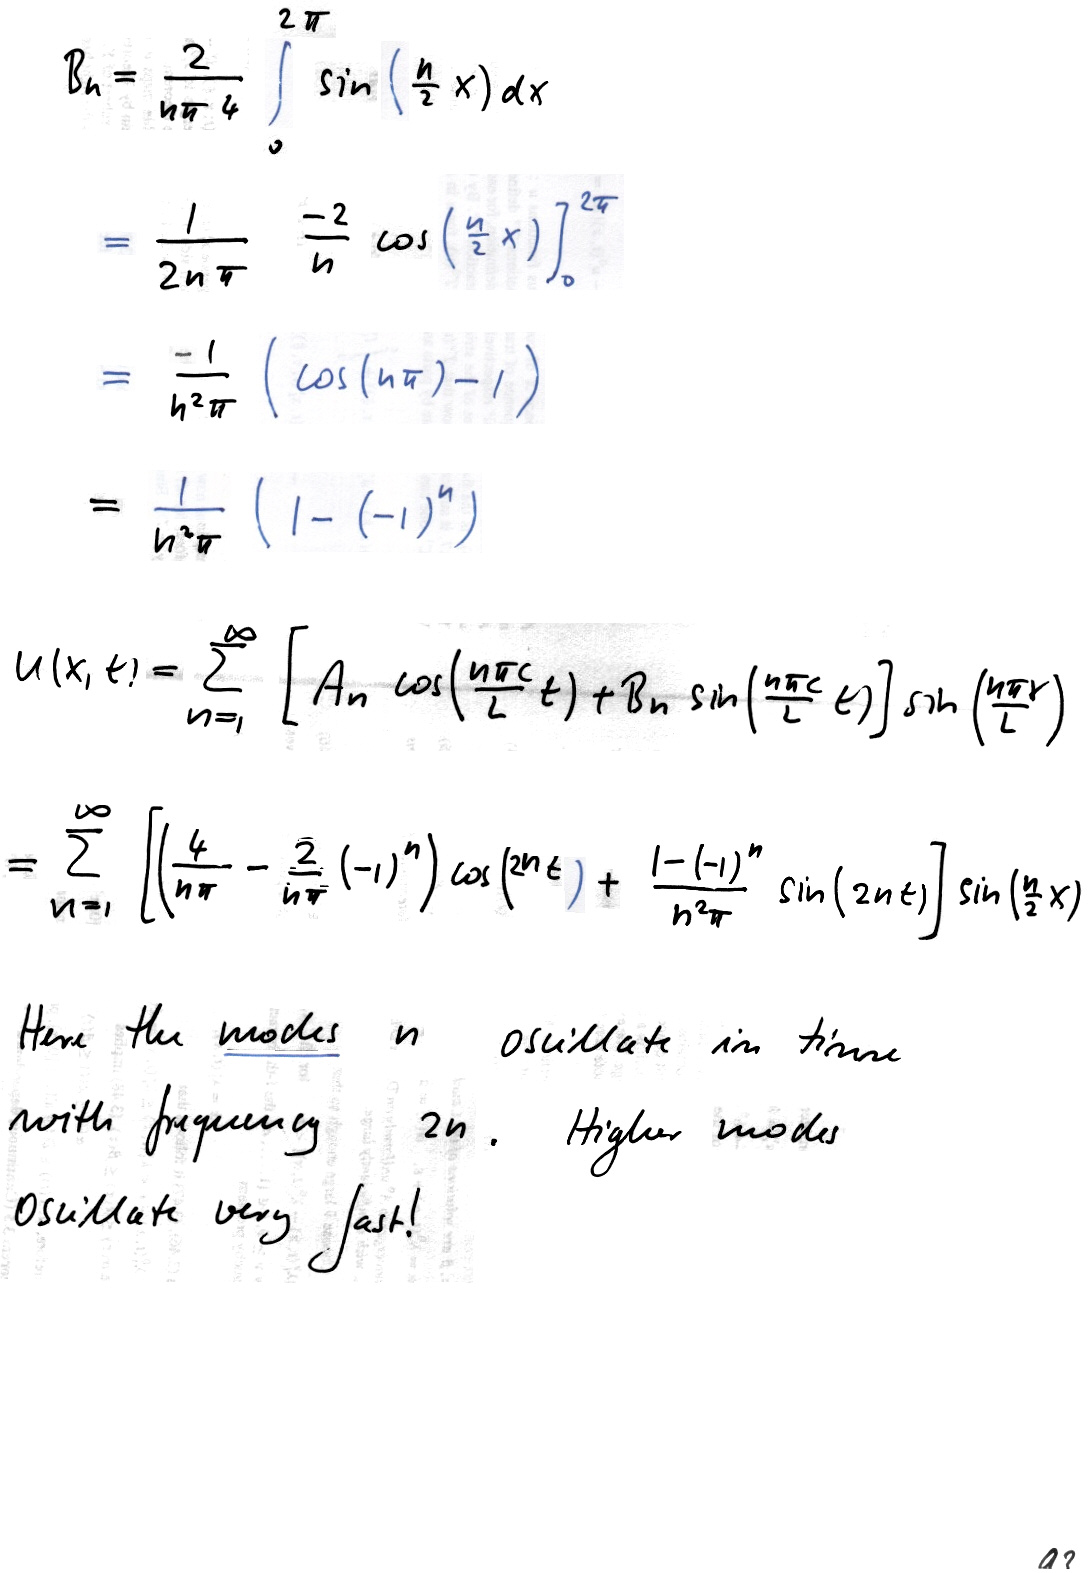 Bn = 2/(nπ 4) ∫₀^{2π} sin(n/2 x) dx
= 1/(2nπ) -2/n cos(n/2 x)]₀^{2π}
= -1/(n²π) (cos(nπ) - 1)
= 1/(n²π) (1 - (-1)ⁿ)
u(x,t) = Σ_{n=1}^{∞} [An cos(nπc/L t) + Bn sin(nπc/L t)] sin(nπx/L)
= Σ_{n=1}^{∞} [(4/(nπ) - 2/(nπ) (-1)ⁿ) cos(2nt) + (1-(-1)ⁿ)/(n²π) sin(2nt)] sin(n/2 x)
Here the modes n oscillate in time
with frequency 2n. Higher modes
oscillate very fast!